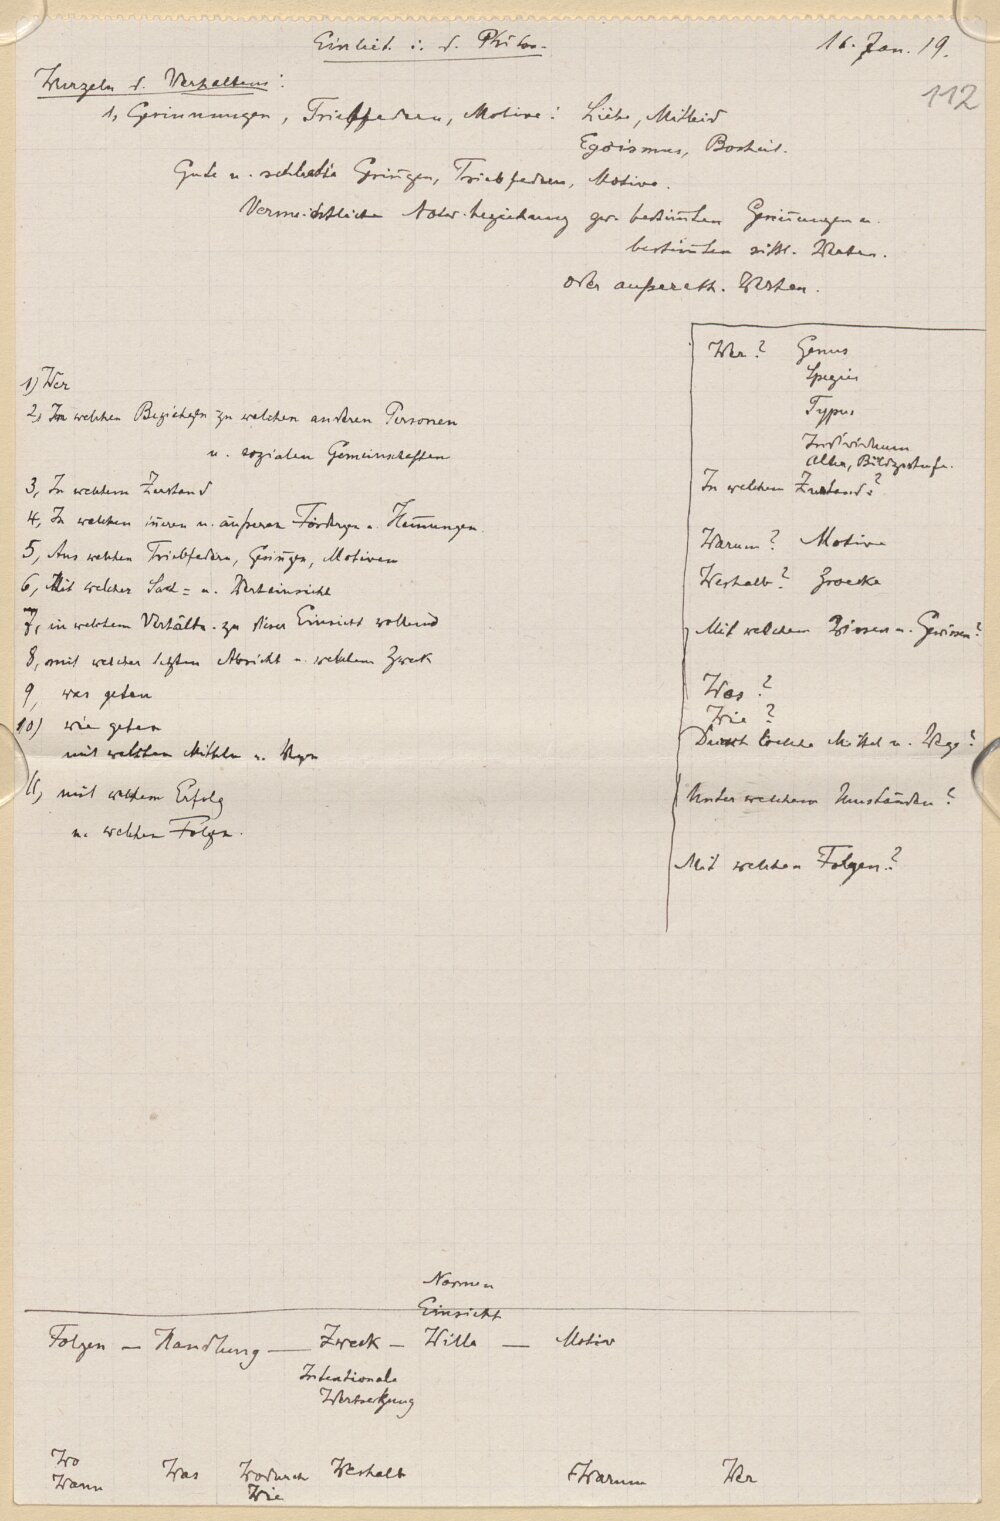 Einleit. i. d. Philos.
16. Jan. 19.
112
Wurzeln d. Verhaltens:
1, Gesinnungen, Triebfedern, Motive: Liebe, Mitleid
Egoismus, Bosheit.
Gute u. schlechte Gesiungen, Triebfedern, Motive.
Vermeintliche Notw. beziehung zw. bestimten Gesinungen u.
bestimten sittl. Werten.
oder außereth. Werten.
1) Wer
2, In welchen Beziehgn zu welchen anderen Personen
u. sozialen Gemeinschaften
3, In welchem Zustand
4, In welchen ineren u. äußeren Fördergn u. Hemungen.
5, Aus welchen Triebfedern, Gesingen, Motiven
6, Mit welcher Sach= u. Werteinsicht
7, in welchem Verhältn. zu dieser Einsicht wollend
8, mit welcher letzten Absicht u. welchem Zweck
9, was getan
10) wie getan
mit welchen Mitteln u. Wegen
11, mit welchem Erfolg
u. welchen Folgen.
Wer? Genus
Spezies
Typus
Individuum
Alter, Bildgsstufe.
In welchem Zustand?
Warum? Motive
Weshalb? Zwecke
Mit welchem Wissen u. Gewissen?
Was?
Wie?
Durch welche Mittel u. Wege?
Unter welchen Umständen?
Mit welchen Folgen?
Normen
Einsicht
Folgen — Handlung — Zweck — Wille — Motiv
Intentionale
Wertsetzung
Wo
Wann
Was
Wodurch
Wie
Weshalb
Warum
Wer